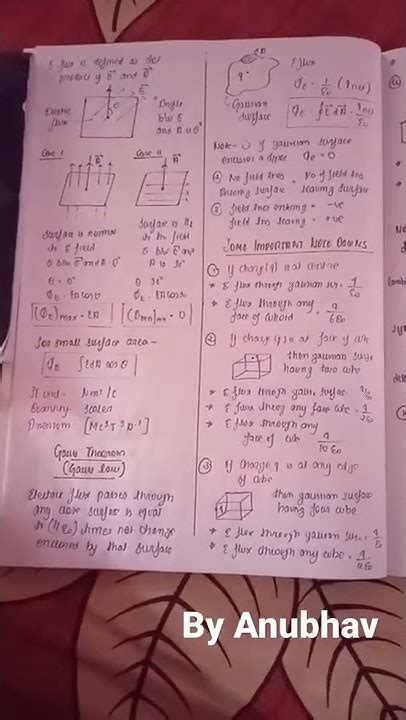 E flux is defined as dot
product of E⃗ and A⃗
Electric
flux
θ
E⃗
"Angle
b/w E
and A is θ"
Case I
Case II
A⃗
Surface is normal
to E field
θ b/w E⃗ and A⃗ - 0°
θ = 0°
Φe = EA cos 0
[(Φe)max = EA]
to the field
θ b/w E⃗ and
A is 90°
θ 90°
Φe = EA cos 90
= 0
for small surface area -
Φe ∫EdA cos θ
SI unit - Nm²/C
Quantity - Scalar
Dimension -
Gauss Theorem
(Gauss law)
Electric flux passes through
any close surface is equal
to (1/ε0) times net charge
enclosed by that surface
q
dA
Gaussian
surface
E flux
Φe = 1/ε0 (qnet)
Φe = ∮E⃗ dA⃗ = qnet/ε0
Note - ① if gaussian surface
encloses a dipole Φe = 0
② No field lines = No of field lines
entering surface leaving surface
③ field lines entering = -ve
field lines leaving = +ve
SOME IMPORTANT NOTE DOWNS
① If charge (q) is at centre
* E flux through gaussian sur. = q/ε0
* E flux through any = q/6ε0
face of cuboid
② If charge (q) is at face of cube
then gaussian surface
having two cube
* E flux through gaus. surface q/ε0
* E flux through any cube = q/2ε0
* E flux through any
face of cube q/10ε0
③ If charge q is at any edge
of cube
then gaussian surface
having four cube
* E flux through gaussian sur. = q/ε0
* E flux through any cube = q/4ε0
By Anubhav